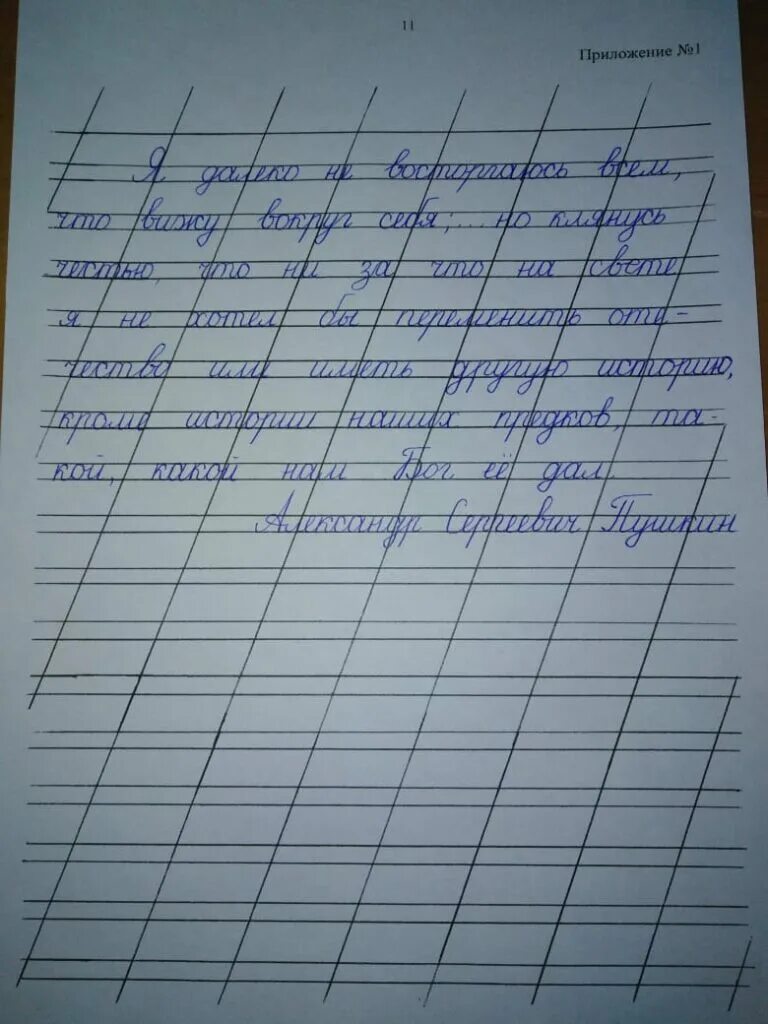 11
Приложение №1
Я далеко не восторгаюсь всем,
что вижу вокруг себя;... но клянусь
честью, что ни за что на свете
я не хотел бы переменить оте-
чество или иметь другую историю,
кроме истории наших предков, та-
кой, какой нам Бог её дал.
Александр Сергеевич Пушкин